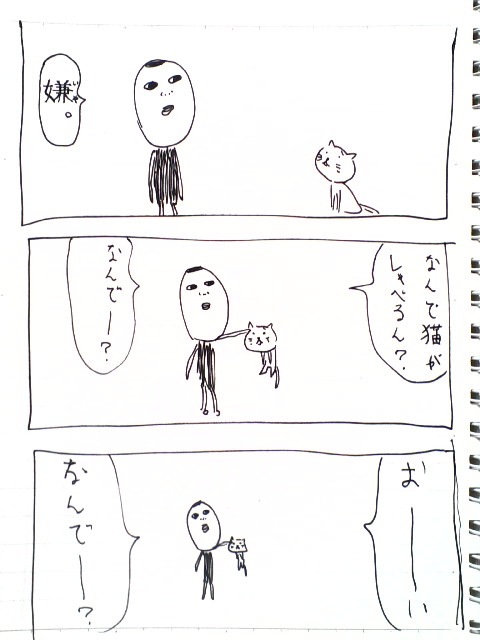 嫌じゃ。
なんで猫が
しゃべるん?
なんでー?
おーい
なんでー?